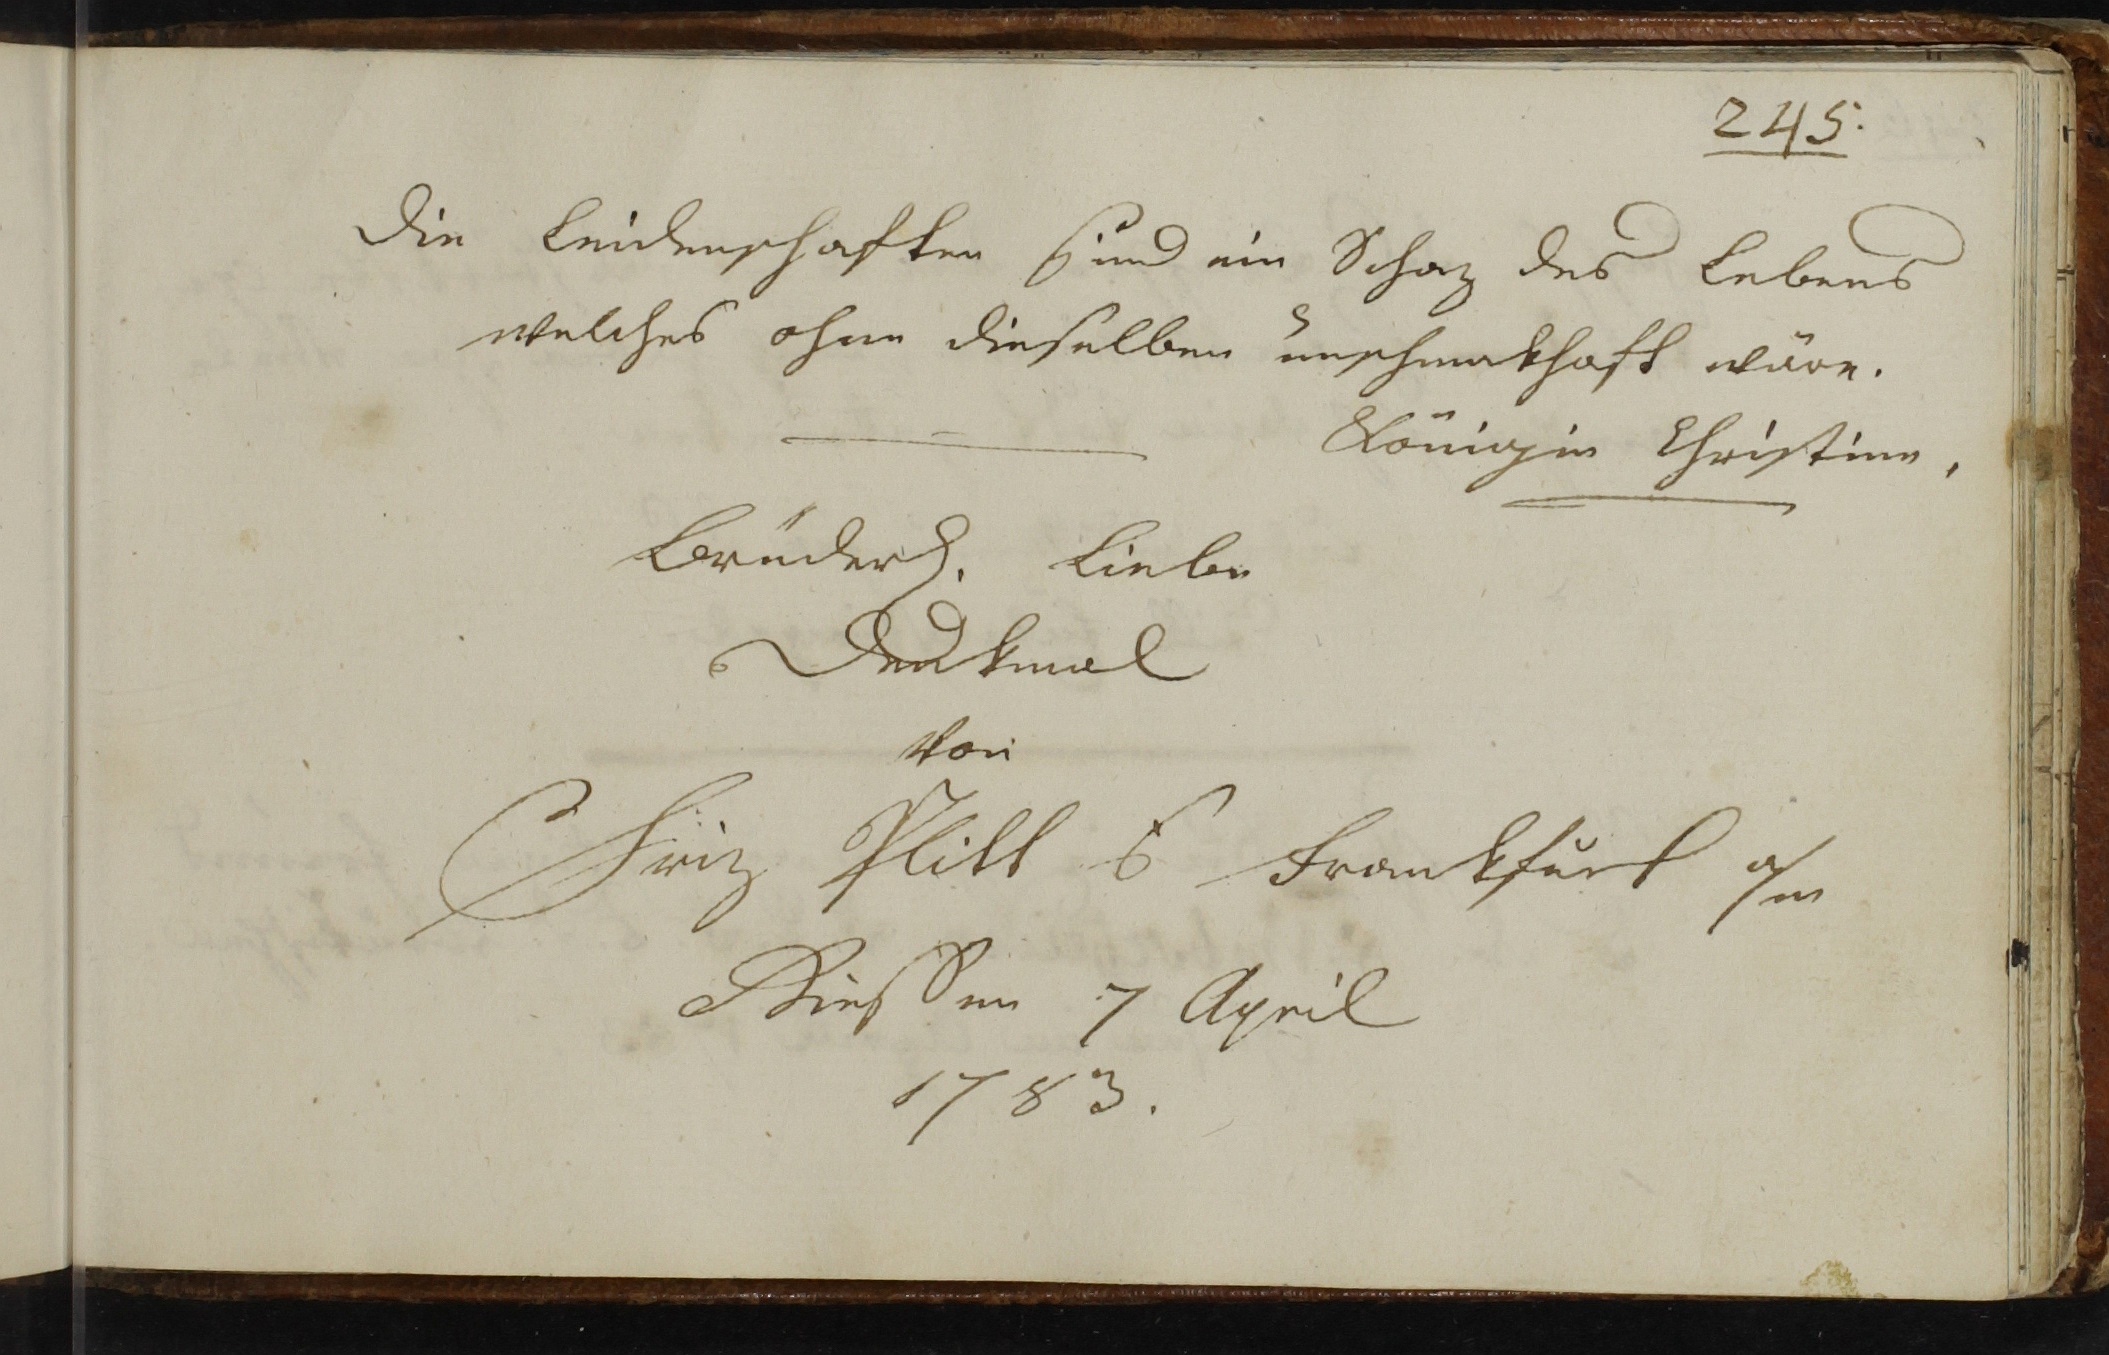 245.
Die Leidenschaften sind ein Schaz des Lebens
welches ohne dieselben unschmakhaft wäre.
Königin Christine,
Brüderl. Liebe
Denkmal
von
Friz Plitt
Frankfurt a/m
Giessen 7 April
1783.